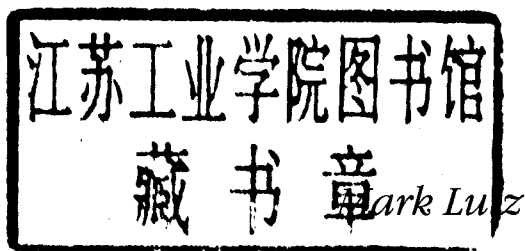 江苏工业学院图书馆
藏书章
Mark Lutz